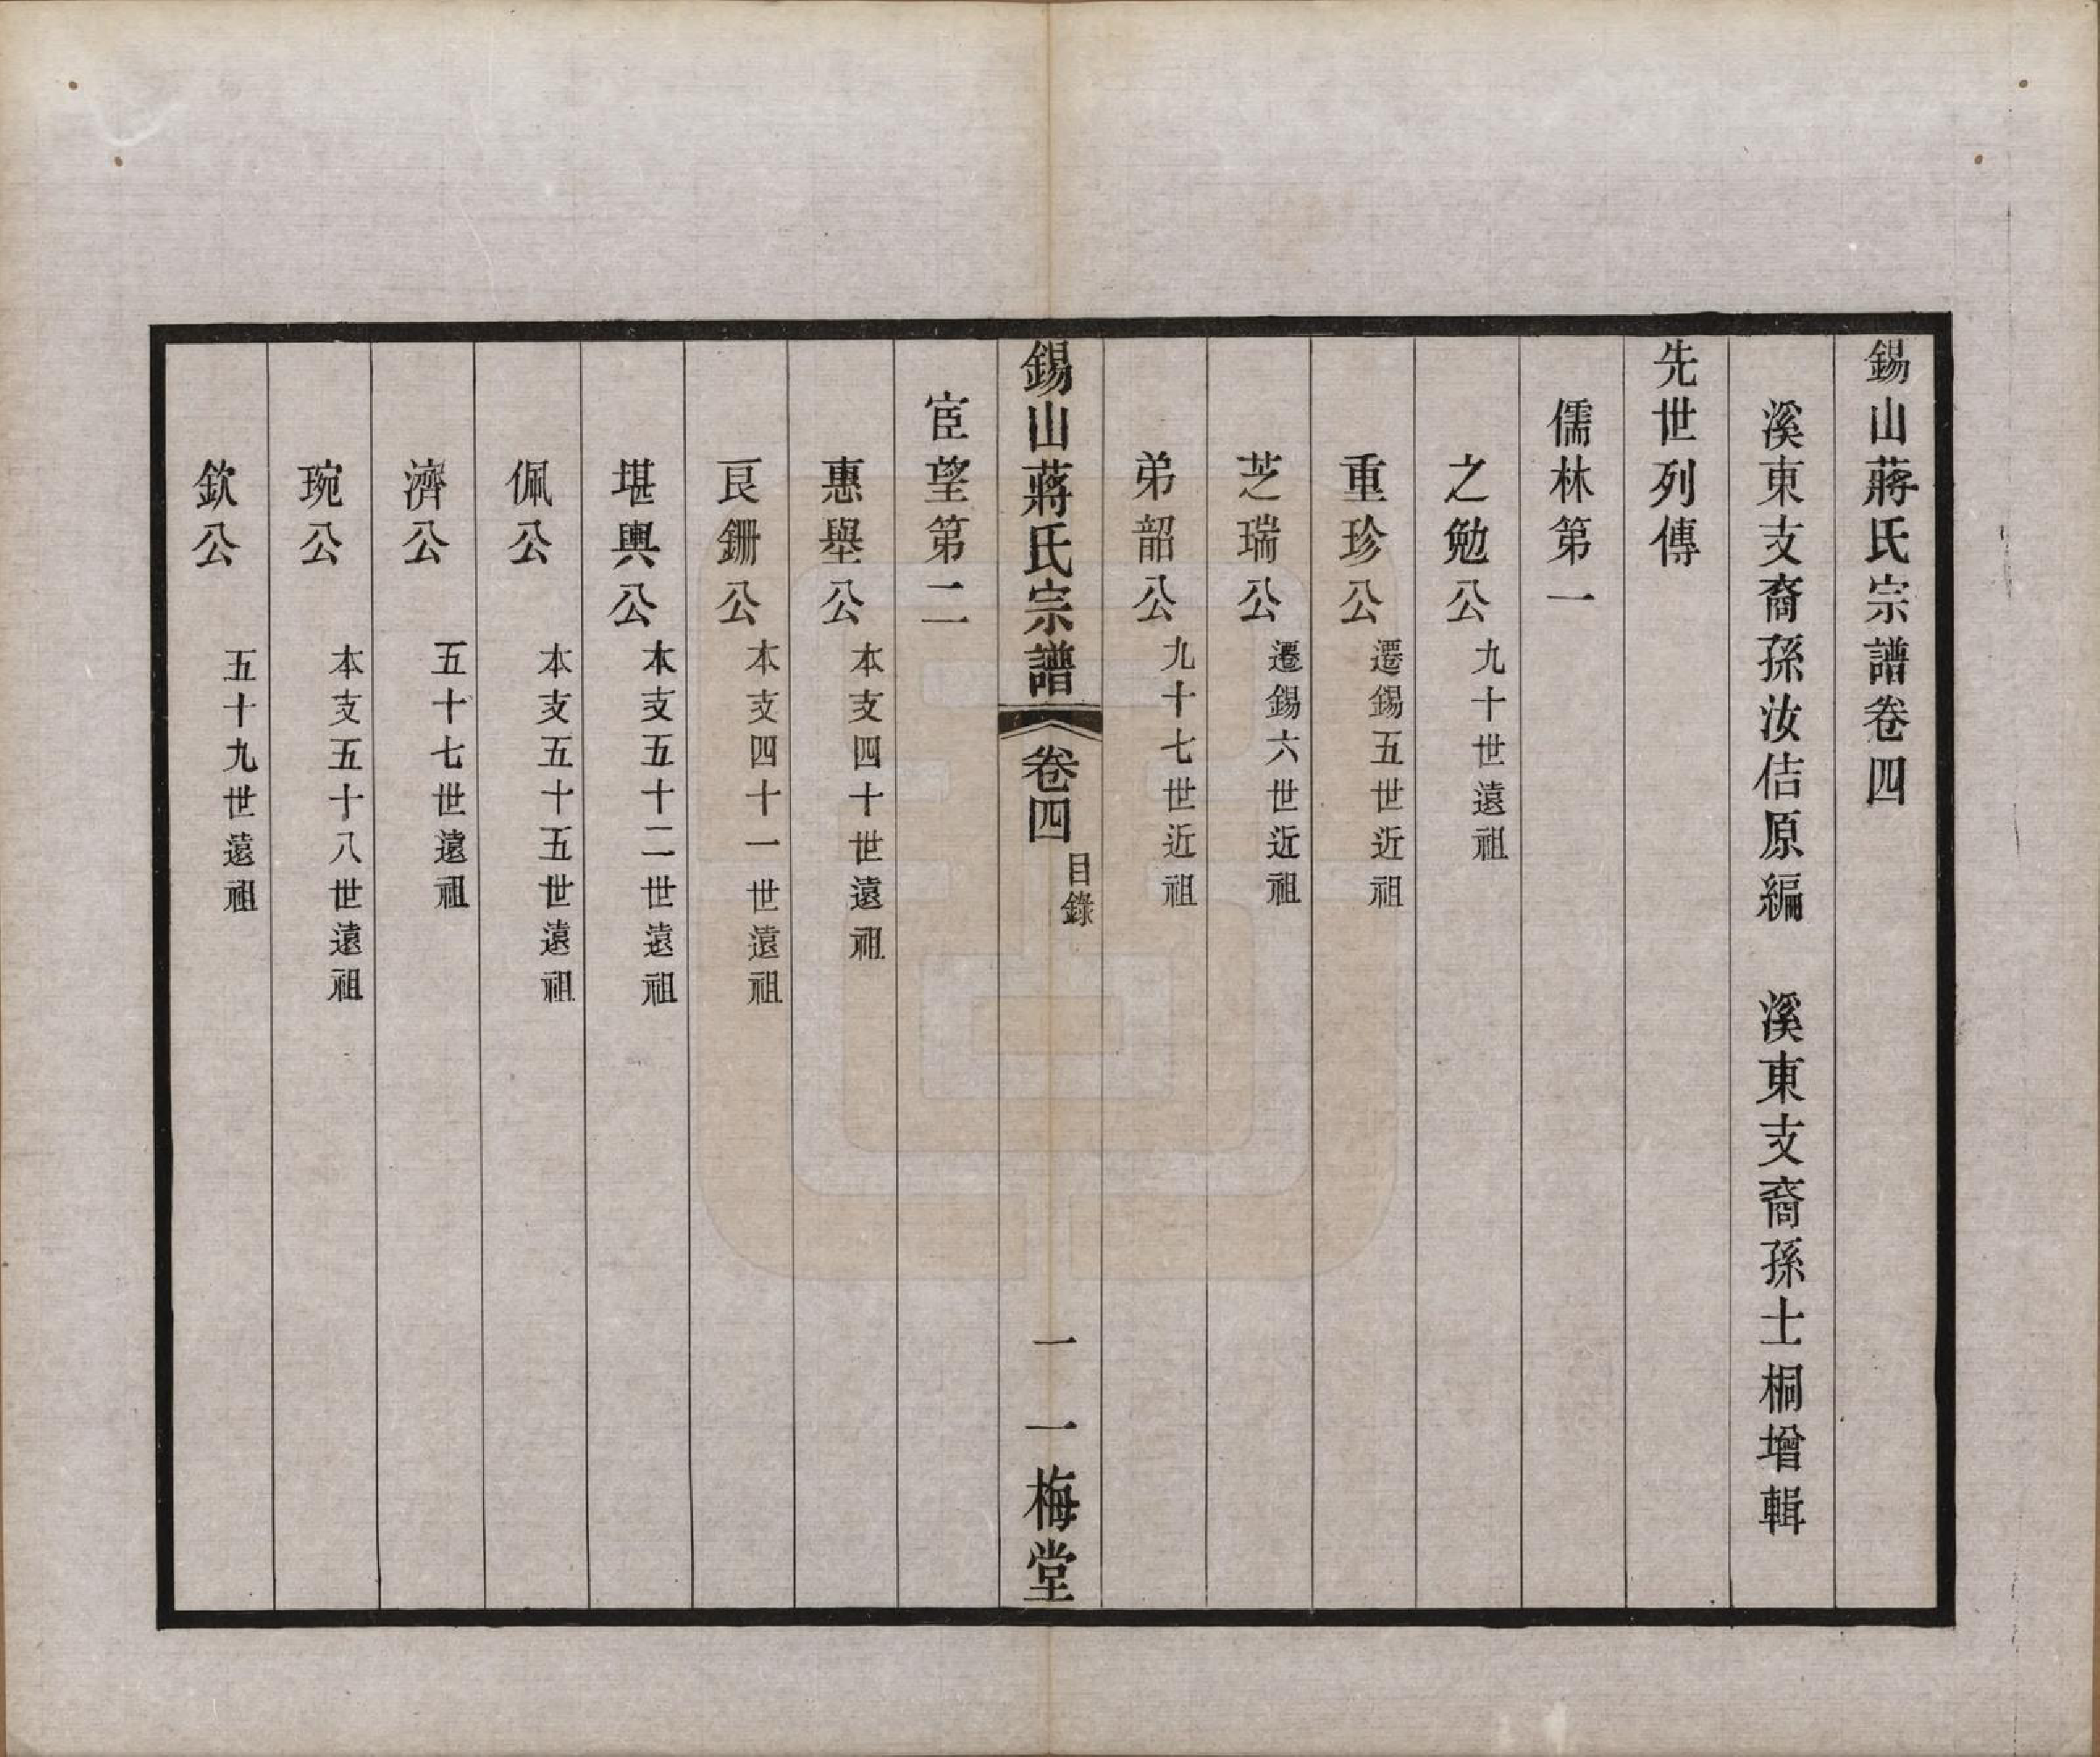 錫山蔣氏宗譜卷四
溪東支裔孫汝佶原編　溪東支裔孫士桐增輯
先世列傳
儒林第一
之勉公　九十世遠祖
重珍公　遷錫五世近祖
芝瑞公　遷錫六世近祖
弟韶公　九十七世近祖
錫山蔣氏宗譜　卷四　目錄　一　一梅堂
宦望第二
惠舉公　本支四十世遠祖
艮鉶公　本支四十一世遠祖
堪輿公　本支五十二世遠祖
佩公　本支五十五世遠祖
濟公　五十七世遠祖
琬公　本支五十八世遠祖
欽公　五十九世遠祖